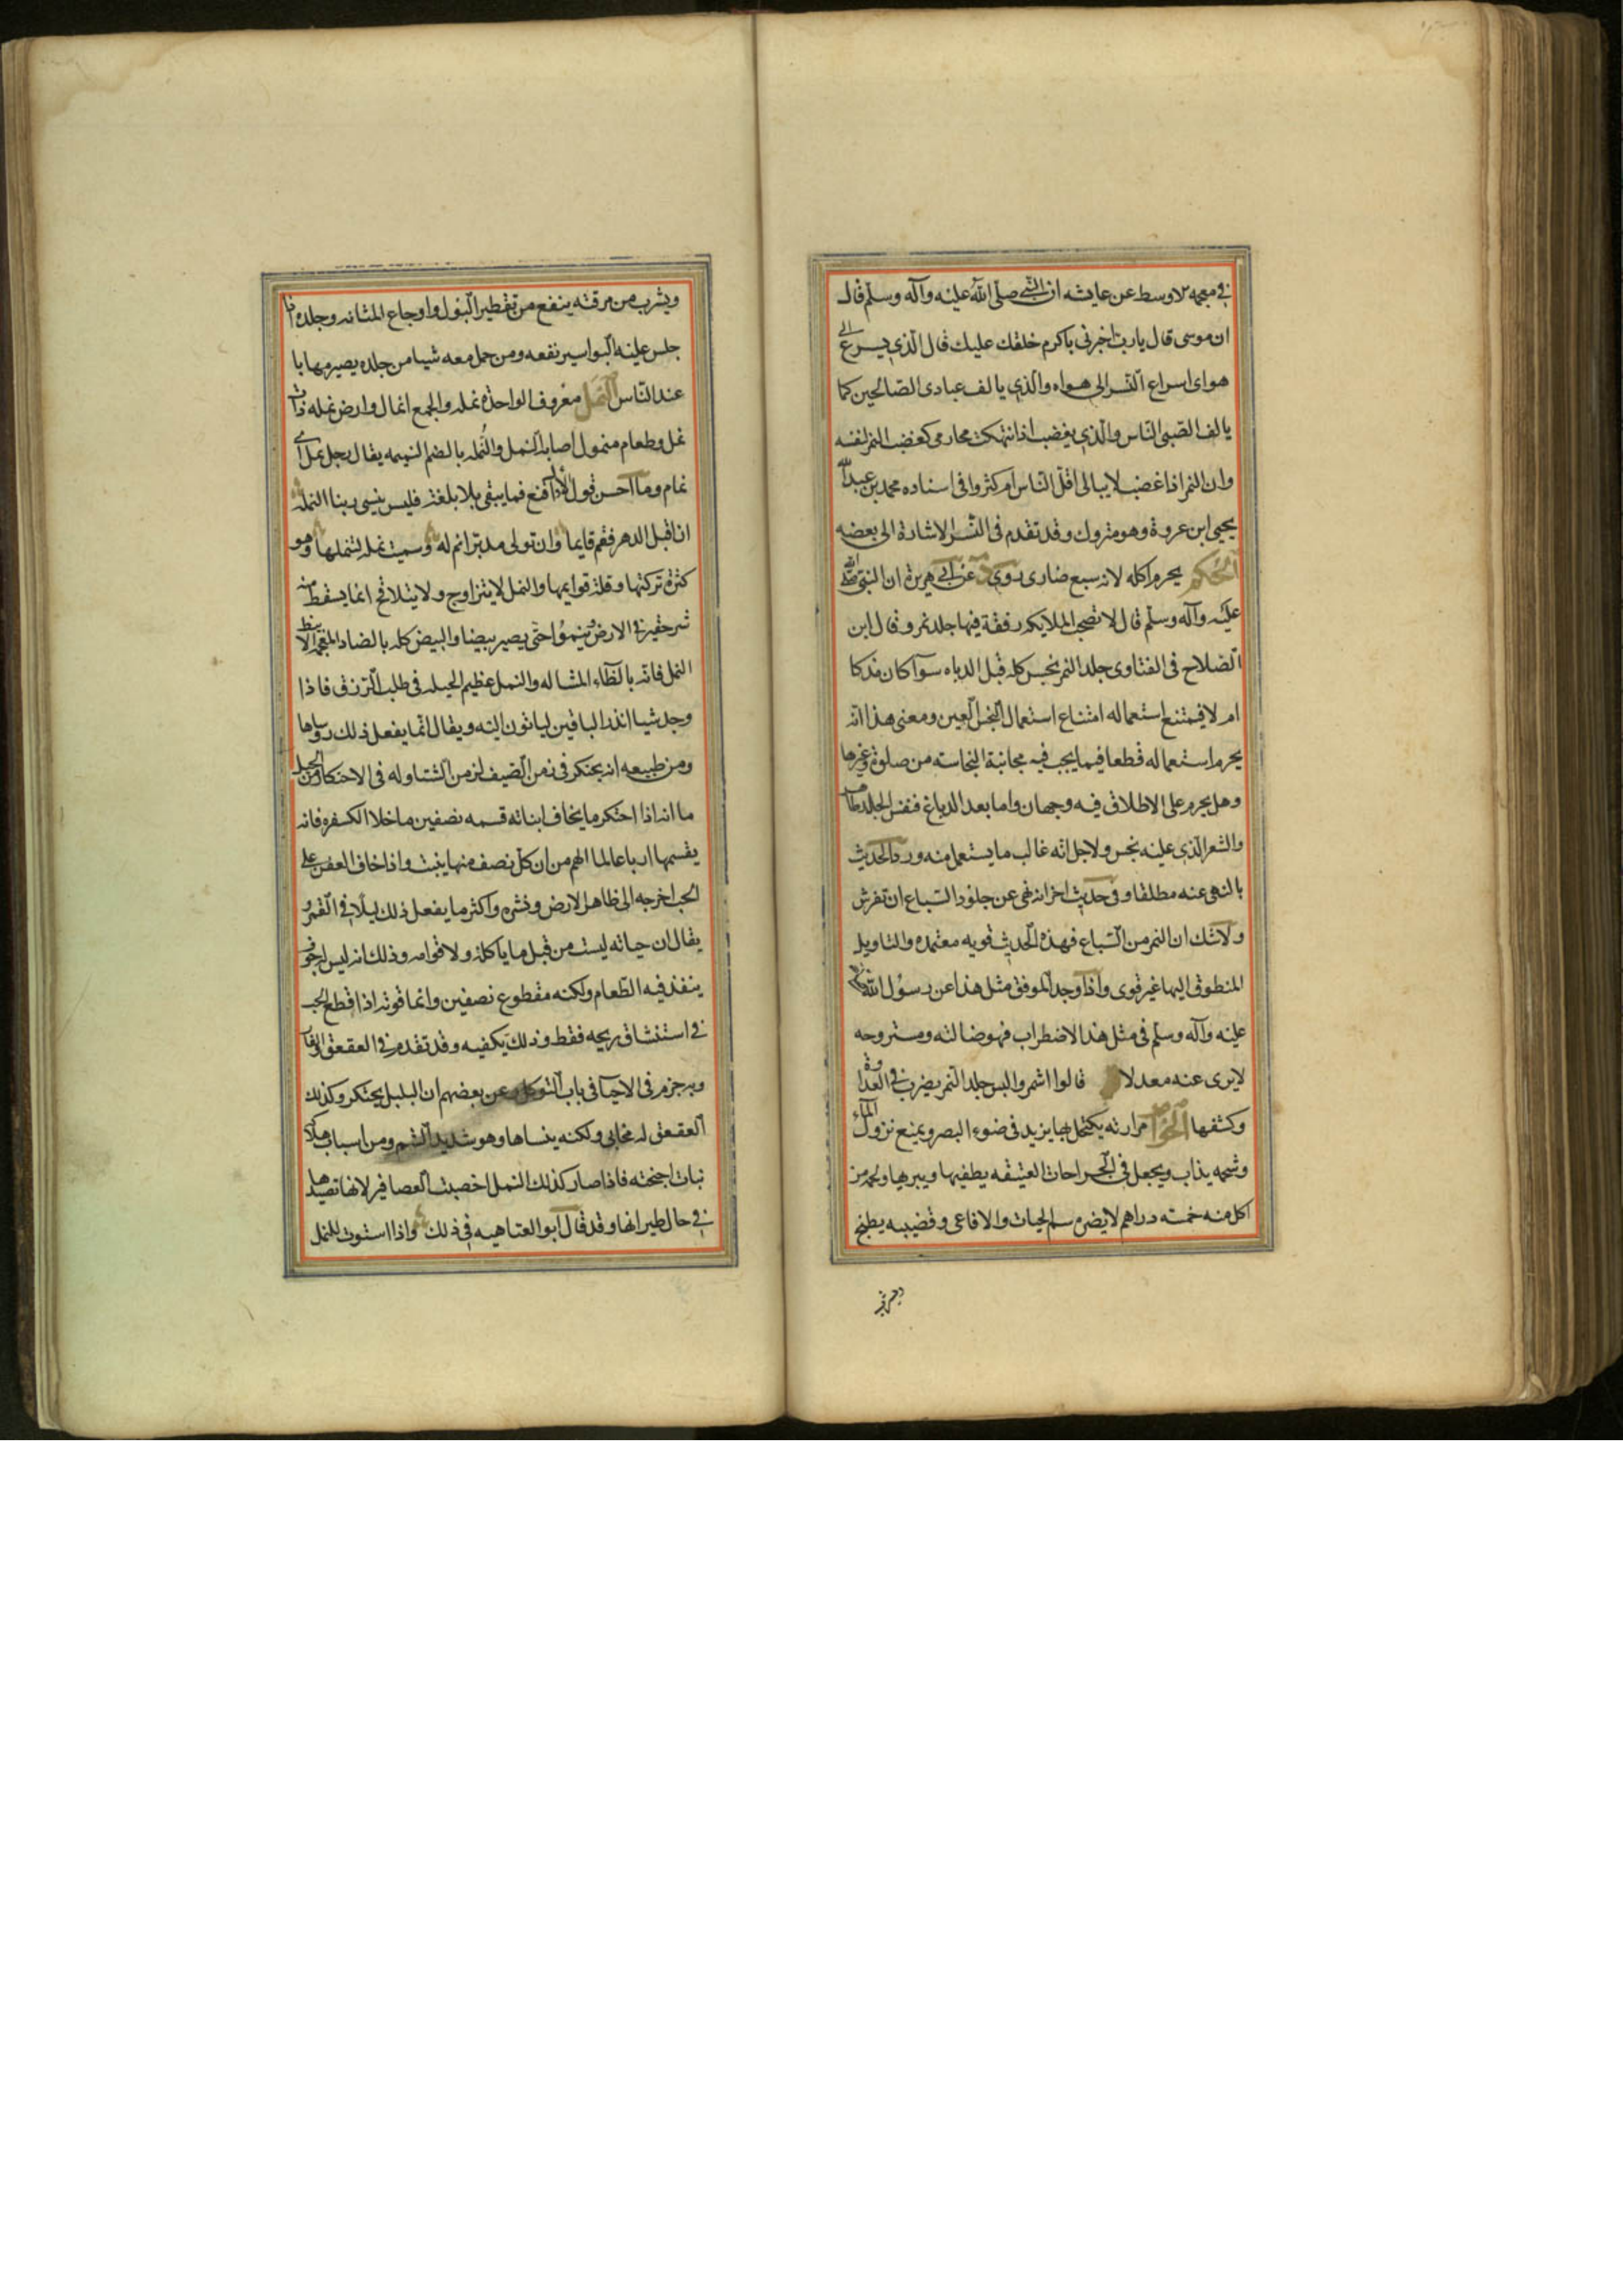 في معجمه الاوسط عن عايشه ان النبي صلى الله عليه وآله وسلم قال
ان موسى قال يا رب اخبرني باكرم خلقك عليك قال الذي يسرع الى
هواى اسراع النسر الى هواه والذي يالف عبادى الصالحين كما
يالف الصبي الناس والذي يغضب اذا انتهكت محارمى كغضب النمر لنفسه
وان النمر اذا غضب لا يبالى اقل الناس ام كثروا فى اسناده محمد بن عبد الله
يحيى ابن عروة وهو متروك وقد تقدم فى النسر الاشارة الى بعضه
الحكم يحرم اكله لانه سبع ضارى روى د عن ابى هريرة ان النبي صلى الله
عليه وآله وسلم قال لا تصحب الملايكه رفقة فيها جلد نمر وقال ابن
الصلاح فى الفتاوى جلد النمر نجس كله قبل الدباه سوآ كان مذكا
ام لا فيمتنع استعماله امتناع استعمال النجس العين ومعنى هذا انه
يحرم استعماله قطعا فيما يجب فيه مجانبة النجاسة من صلوة وغيرها
وهل يحرم على الاطلاق فيه وجهان واما بعد الدباغ فنفس الجلد طاهر
والشعر الذي عليه نجس ولاجل انه غالب ما يستعمل منه ورد الحديث
بالنهى عنه مطلقا وفى حديث اخر انه نهى عن جلود السباع ان تفرش
ولا شك ان النمر من السباع فهذه الحديث قويه معتمده والتاويل
المنطوق اليها غير قوى واذا وجد الموفق مثل هذا عن رسول الله صلى الله
عليه وآله وسلم فى مثل هذا الاضطراب فهو ضالته ومستروحه
لا يرى عنه معدلا قالوا اشمر والبس جلد النمر يضرب فى العداوة
وكشفها الخواص مرارته يكتحل بها يزيد فى ضوء البصر ويمنع نزول الماء
وشحمه يذاب ويجعل فى الجراحات العتيقه يطفيها ويبريها ولحمه من
اكل منه خمسة دراهم لا يضره سم الحيات والافاعى وقضيبه يطبخ
ويشرب من مرقته ينفع من تقطير البول واوجاع المثانه وجلده اذا
جلس عليه البواسير نفعه ومن حمل معه شيا من جلده يصير مهابا
عند الناس النمل معروف الواحدة نمله والجمع انمال وارض نمله ذات
نمل وطعام منمول اصابه النمل والنمله بالضم النميمه يقال رجل نمل اى
نمام وما احسن قول الاول اقنع فما يبقى بلا بلغة فليس ينسى ربنا النمله
ان اقبل الدهر فقم قايما وان تولى مدبرا نم له وسميت نمله لتنملها وهو
كثرة تركتها وقلة قوايمها والنمل لا يتزاوج ولا يتلاقح انما يسقط منه
شى حقير فى الارض فينموا حتى يصير بيضا والبيض كله بالضاد المعجمه الا بيظ
النمل فانه بالظاء المشاله والنمل عظيم الحيله فى طلب الرزق فاذا
وجد شيا انذر الباقين لياتون اليه ويقال انما يفعل ذلك رساها
ومن طبيعه انه يحتكر فى زمن الصيف لزمن الشتاوله فى الاحتكار من الحيل
ما انه اذا احتكر ما يخاف انباته قسمه نصفين ما خلا الكسفره فانه
يقسمها ارباعا لما الهم من ان كل نصف منها ينبت واذا خاف العفن على
الحب اخرجه الى ظاهر الارض ونشره واكثر ما يفعل ذلك ليلا فى القمر و
يقال ان حياته ليست من قبل ما ياكله ولا قوامه وذلك انه ليس له جوف
ينفذ فيه الطعام ولكنه مقطوع نصفين وانما قوته اذا قطع الحب
فى استنشاق ريحه فقط وذلك يكفيه وقد تقدم فى العقعق والفار
وبه جزم فى الاحيآ فى باب التوكل وعن بعضهم ان البلبل يحتكر وكذلك
العقعق له مخابى ولكنه ينساها وهو شديد الشم ومن اسباب هلاكه
نبات اجنحته فاذا صار كذلك النمل اخصبت العصافير لانها تصيدها
فى حال طيرانها وقد قال ابو العتاهيه فى ذلك واذا استوت للنمل
ويشرب